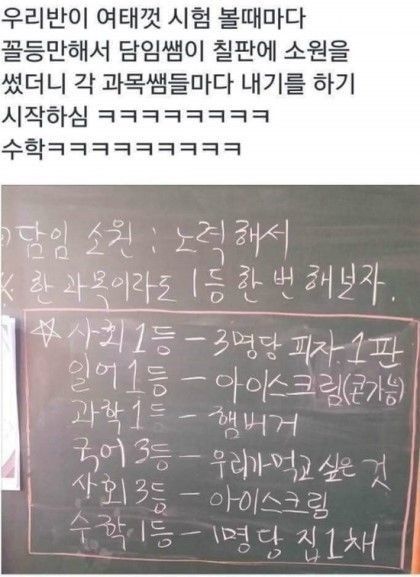 우리반이 여태껏 시험 볼때마다
꼴등만해서 담임쌤이 칠판에 소원을
썼더니 각 과목쌤들마다 내기를 하기
시작하심 ㅋㅋㅋㅋㅋㅋㅋㅋ
수학ㅋㅋㅋㅋㅋㅋㅋㅋㅋ
담임 소원 : 노력해서
한 과목이라도 1등 한 번 해보자.
☆ 사회 1등 - 3명당 피자 1판
일어 1등 - 아이스크림(콘가능)
과학 1등 - 햄버거
국어 3등 - 우리가 먹고 싶은 것
사회 3등 - 아이스크림
수학 1등 - 1명당 집 1채